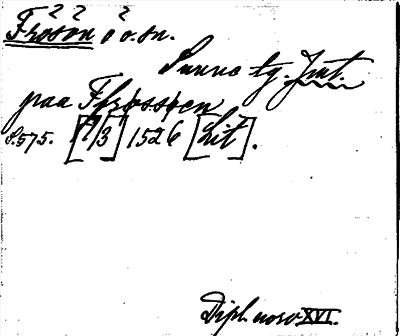 Fròsòn ò o. sn.
Sunne tg. Jmt.
paa Ffrossen
S. 575. [7/3] 1526 [Lit].
Dipl. norv XVI.